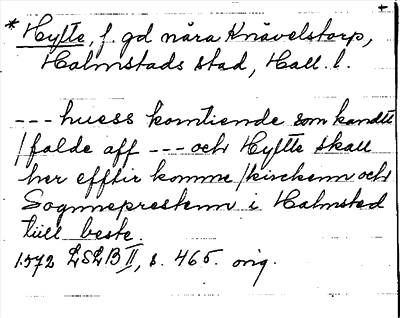 * Hyltte, f. gd nära Knävelstorp,
Halmstads stad, Hall. l.
--- huess korntiende som kandtt
/falde aff --- och Hyltte skall
her efftir komme /kirckenn och
Sognneprestenn i Halmsted
tiill beste.
1572 LSLB II, s. 465. orig.